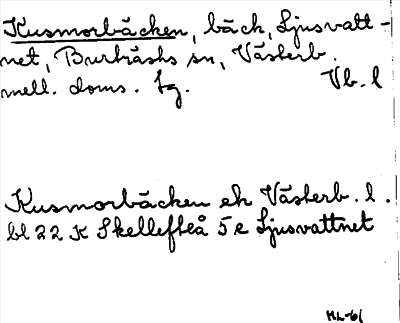 Kusmorbäcken, bäck, Ljusvatt-
net, Burträsks sn, Västerb.
mell. doms. tg. Vb. l
Kusmorbäcken ek Västerb. l.
bl 22 K Skellefteå 5 e Ljusvattnet
HL-61